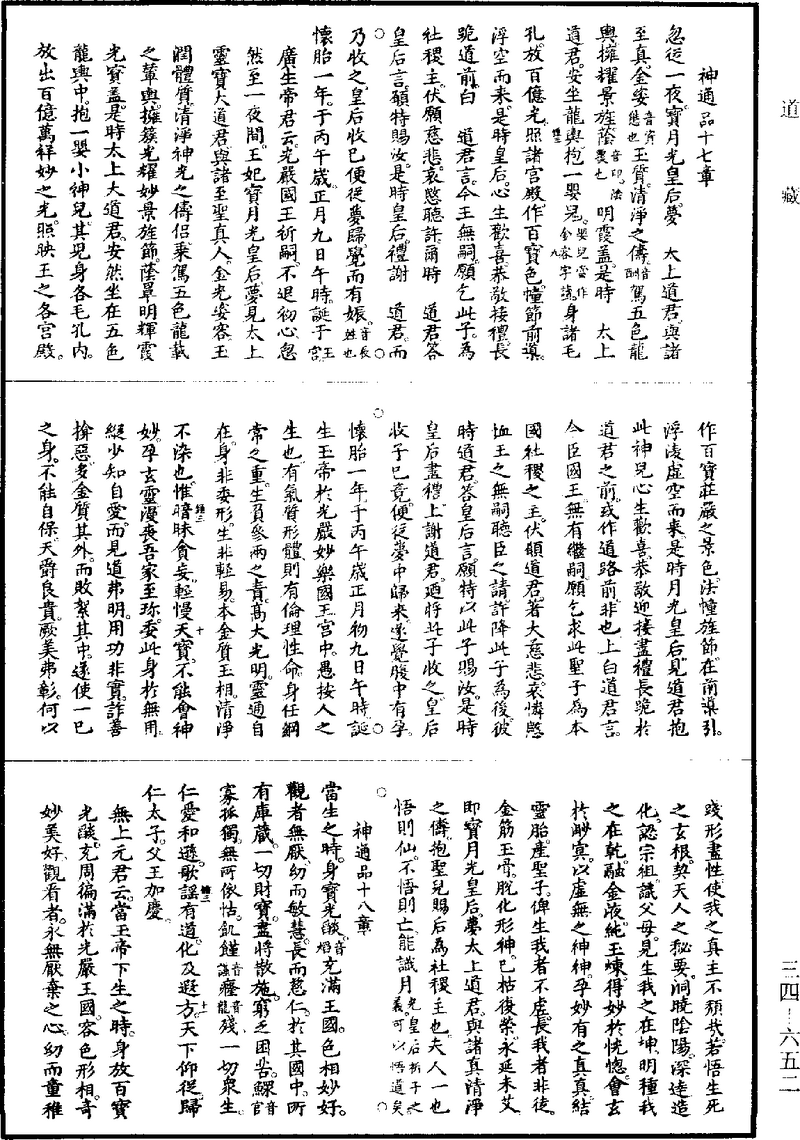 道藏
神通品十七章
忽從一夜寶月光皇后夢　太上道君與諸
至真金姿音資態也玉質清淨之儔音酬駕五色龍
輿擁耀景旌蔭音印法覆也明霞蓋是時　太上
道君安坐龍輿抱一嬰兒嬰兒當作今容字蔬身諸毛
孔放百億光照諸宮殿作百寶色幢節前導
浮空而來是時皇后心生歡喜恭敬接禮長
跪道前白　道君言今王無嗣願乞此子為
社稷主伏願慈悲哀愍聽許爾時　道君答
皇后言願特賜汝是時皇后禮謝　道君而
乃收之皇后收已便從夢歸覺而有娠音辰姙也
懷胎一年于丙午歲正月九日午時誕于王宮
廣生帝君云光嚴國王祈嗣不退初心忽
然至一夜間王妃寶月光皇后夢見太上
靈寶大道君與諸至聖真人金光姿容玉
潤體質清淨神光之儔侶乘駕五色龍載
之輦輿擁簇光耀妙景旌節蔭罩明輝霞
光寶蓋是時太上大道君安然坐在五色
龍輿中抱一嬰小神兒其兒身各毛孔內
放出百億萬祥妙之光照映王之各宮殿
作百寶莊嚴之景色法幢旌節在前導引
浮凌虛空而來是時月光皇后見道君抱
此神兒心生歡喜恭敬迎接盡禮長跪於
道君之前或作道路前非也上白道君言
今臣國王無有繼嗣願乞求此聖子為本
國社稷之主伏願道君著大慈悲哀憐愍
恤王之無嗣聽臣之請許降此子為後彼
時道君答皇后言願特以此子賜汝是時
皇后盡禮上謝道君迺將此子收之皇后
收子已竟便從夢中歸來遂覺腹中有孕
懷胎一年于丙午歲正月初九日午時誕
生玉帝於光嚴妙樂國王宮中愚按人之
生也有氣質形體則有倫理性命身任綱
常之重生負參兩之責高大光明靈通自
在身非委形生非輕易本金質玉相清淨
不染也惟暗昧貪妄輕慢天寶不能會神
妙孕玄靈漫喪吾家至珍委此身於無用
縱少知自愛而見道弗明用功非實詐善
揜惡多金質其外而敗絮其中遂使一已
之身不能自保天爵良貴厥美弗彰何以
踐形盡性使我之真主不頹哉若悟生死
之玄根契天人之秘要洞曉陰陽深達造
化認宗祖識父母見生我之在坤明種我
之在乾融金液純玉煉得妙於恍惚會玄
於渺冥以虛無之神神孕妙有之真真結
靈胎產聖子俾生我者不虛長我者非徒
金筋玉骨脫化形神已枯復榮永延未艾
即寶月光皇后夢太上道君與諸真清淨
之儔抱聖兒賜后為社稷主也夫人一也
悟則仙不悟則亡能識月光皇后祈子之義可以悟道矣
神通品十八章
當生之時身寶光燄音焰充滿王國色相妙好
觀者無厭幼而敏慧長而慈仁於其國中所
有庫藏一切財寶盡將散施窮乏困苦鰥音官
寡孤獨無所依怙飢饉音謹癃音龍殘一切眾生
仁愛和遜歌謠有道化及遐方天下仰從歸
仁太子父王加慶
無上元君云當玉帝下生之時身放百寶
光燄充周徧滿於光嚴王國容色形相奇
妙美好觀看者永無厭棄之心幼而童稚
三四-六五二